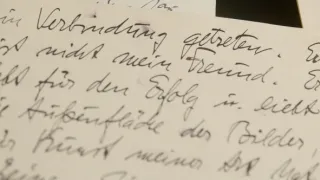 in Verbindung getreten.
nicht mein Freund.
für den Erfolg u. liebt
Außenfläche der Bilder,
Kunst meiner Art hat